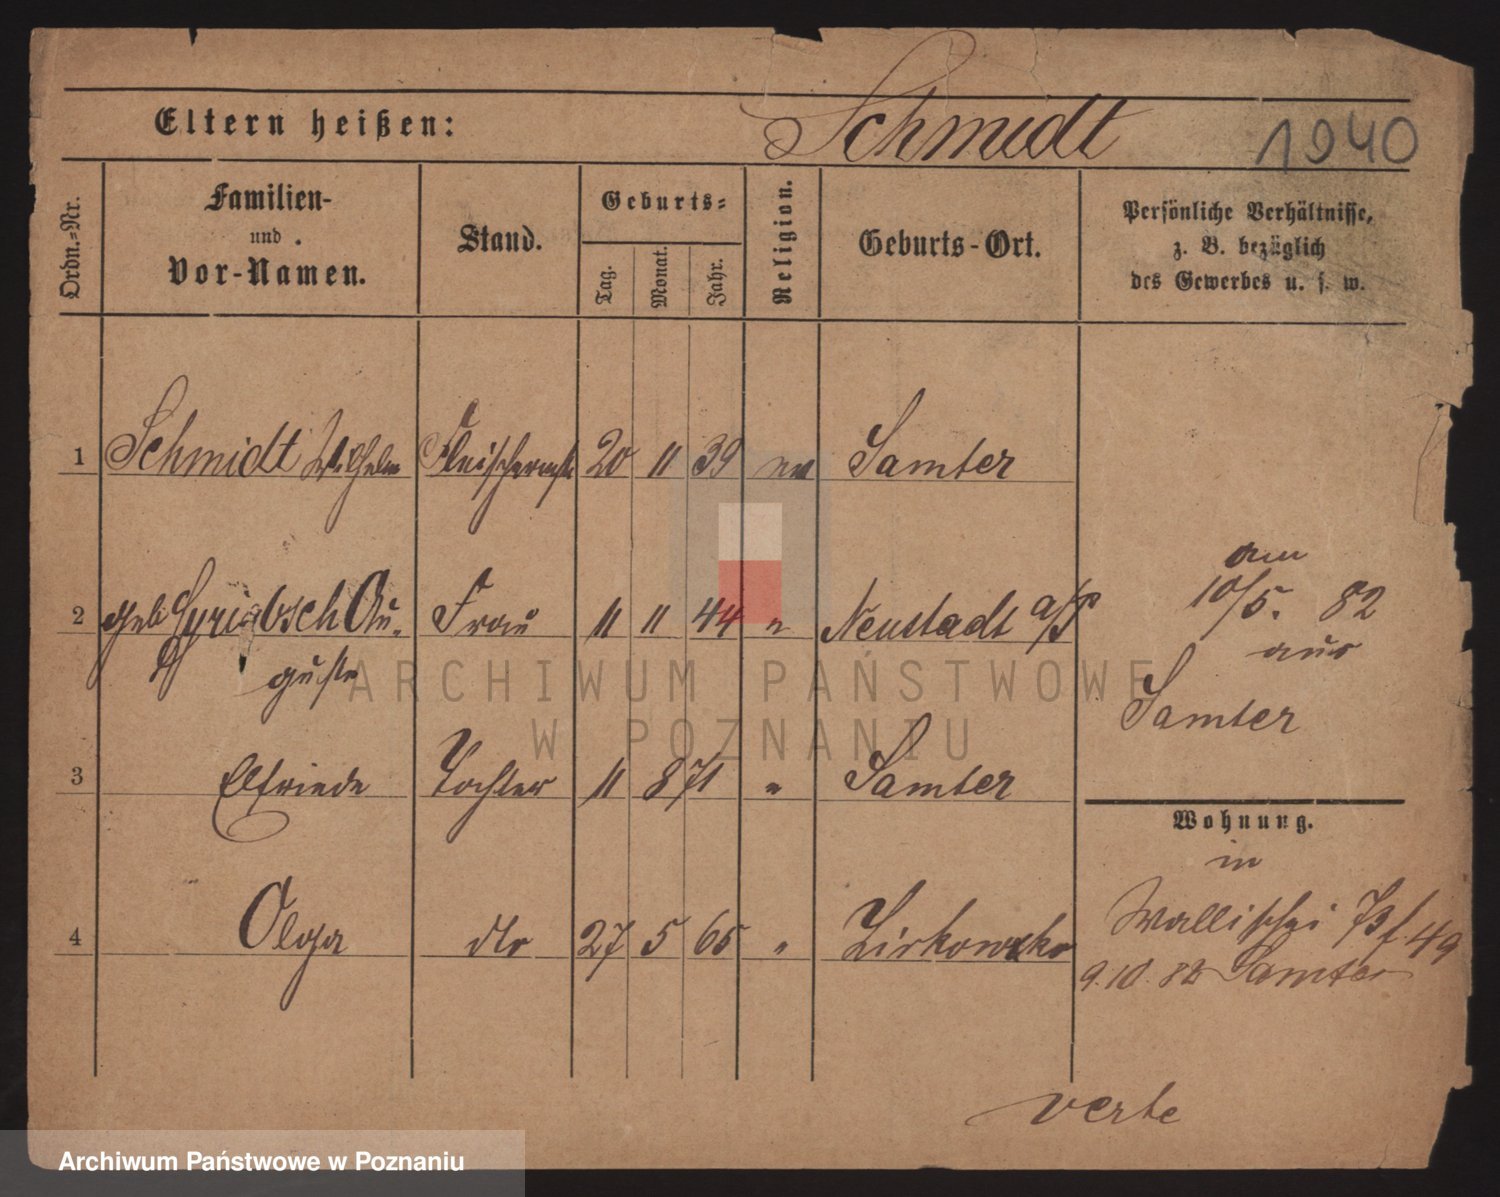 Eltern heißen: Schmidt 1940
Ordn.-Nr.
Familien-
und
Vor-Namen.
Stand.
Geburts-
Tag.
Monat.
Jahr.
Religion.
Geburts-Ort.
Persönliche Verhältnisse,
z. B. bezüglich
des Gewerbes u. s. w.
1 Schmidt Wilhelm Fleischermstr 20 11 39 ev Samter
2 geb Au- Frau 11 11 44 " Neustadt a/P
guste
am
10/5. 82
aus
Samter
3 Elfriede Tochter 11 8 71 " Samter
Wohnung.
in
Wallischei 49
4 Olga dto 27 5 65 " Zirkowko
9.10.82 Samter
verte
ARCHIWUM PAŃSTWOWE
W POZNANIU
Archiwum Państwowe w Poznaniu